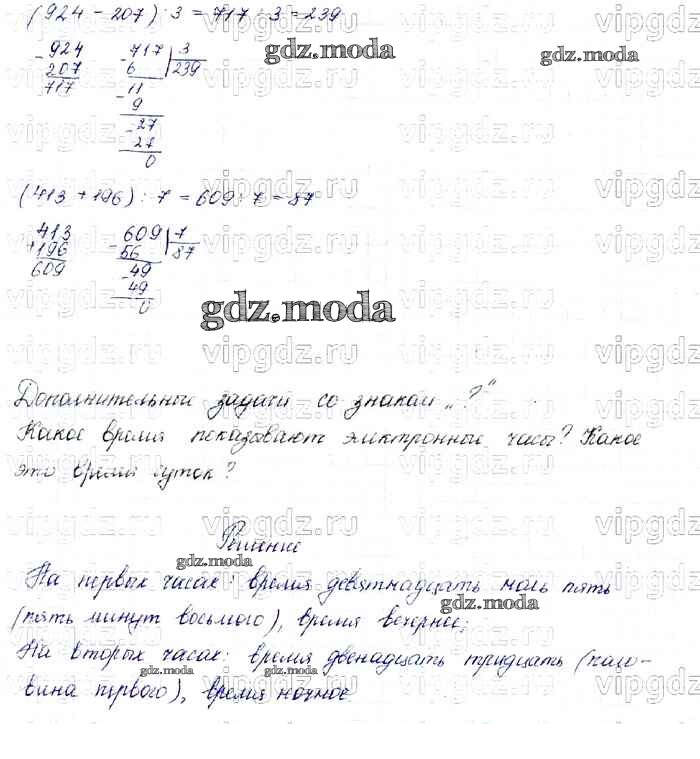 (924 - 207) : 3 = 717 : 3 = 239
- 924
207
717
- 717 | 3
6 239
- 11
9
- 27
27
0
(413 + 196) : 7 = 609 : 7 = 87
413
+ 196
609
- 609 | 7
56 87
- 49
49
0
Дополнительные задачи со знаком „?"
Какое время показывают электронные часы? Какое
это время суток?
Решение
На первых часах: время девятнадцать ноль пять
(пять минут восьмого), время вечернее;
На вторых часах: время двенадцать тридцать (поло-
вина первого), время ночное.
gdz.moda
vipgdz.ru